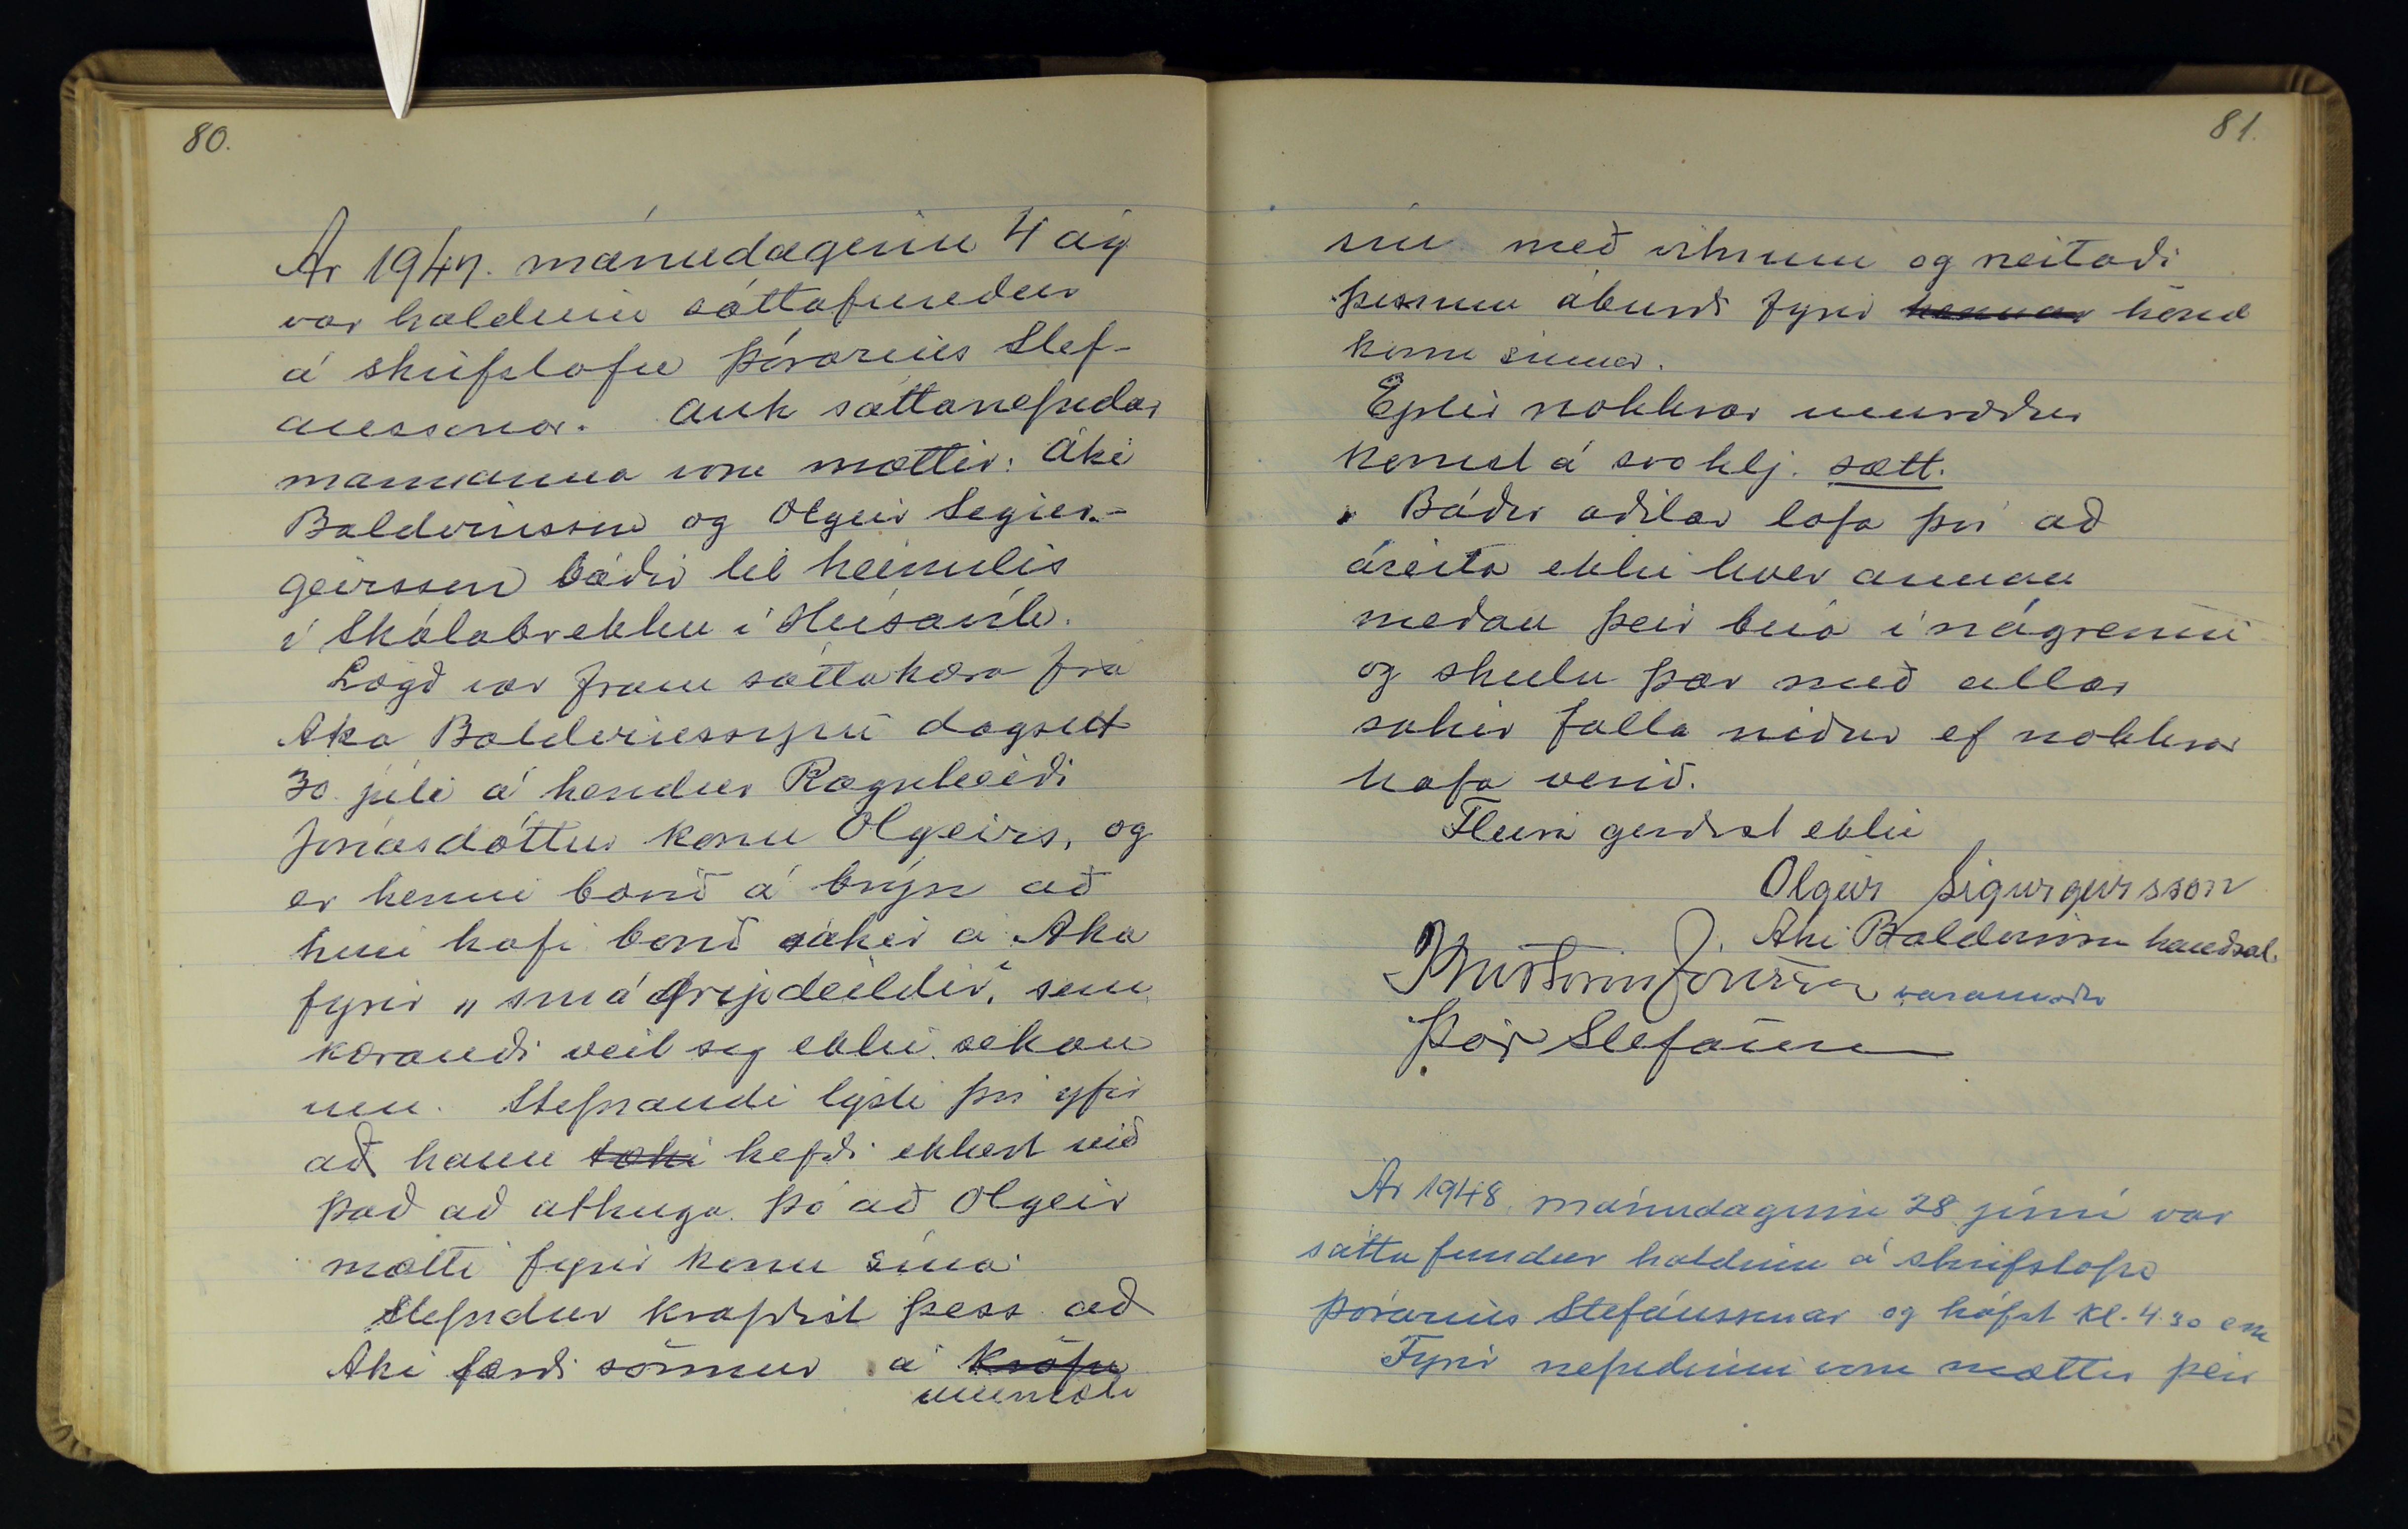 80.
Ár 1947. mánudaginn 4 ág
var haldinn sáttafundur
á skrifstofu Þórarins Stef-
ánssonar. Auk sáttanefndar
mannanna voru mættir: Áki
Baldvinsson og Olgeir Sigur-
geirsson báðir til heimilis
í Skálabrekku í Húsavík.
Lögð var fram sáttakæra frá
Áka Baldvinssyni dagsett
30. júlí á hendur Ragnheiði
Jónasdóttur konu Olgeirs, og
er henni borið á brýn að
hún hafi borið sakir á Áka
fyrir "smá gripdeildir", sem
kærandi veit sig ekki sekan
um. Stefnandi lýsti því yfir
að hann tæki hefði ekkert við
það að athuga þó að Olgeir
mætti fyrir konu sína.
Stefndur krafðist þess að
Áki færði sönnur á kröfu
ummæli
81.
sín með vitnum og neitaði
þessum áburði fyrir hennar hönd
konu sinnar.
Eftir nokkrar umræður
komst á svohlj. sætt.
Báðir aðilar lofa því að
áreita ekki hver annan
meðan þeir búa í nágrenni
og skulu þar með allar
sakir falla niður ef nokkrar
hafa verið.
Fleira gerðist ekki
Olgeir Sigurgeirsson
Áki Baldvinsson handsal.
Jónsson varamaður
Þór Stefánsson
Ár 1948 mánudaginn 28 júní var
sáttafundur haldinn á skrifstofu
Þórarins Stefánssonar og hófst kl. 4.30 em
Fyrir nefndinni voru mættir þeir